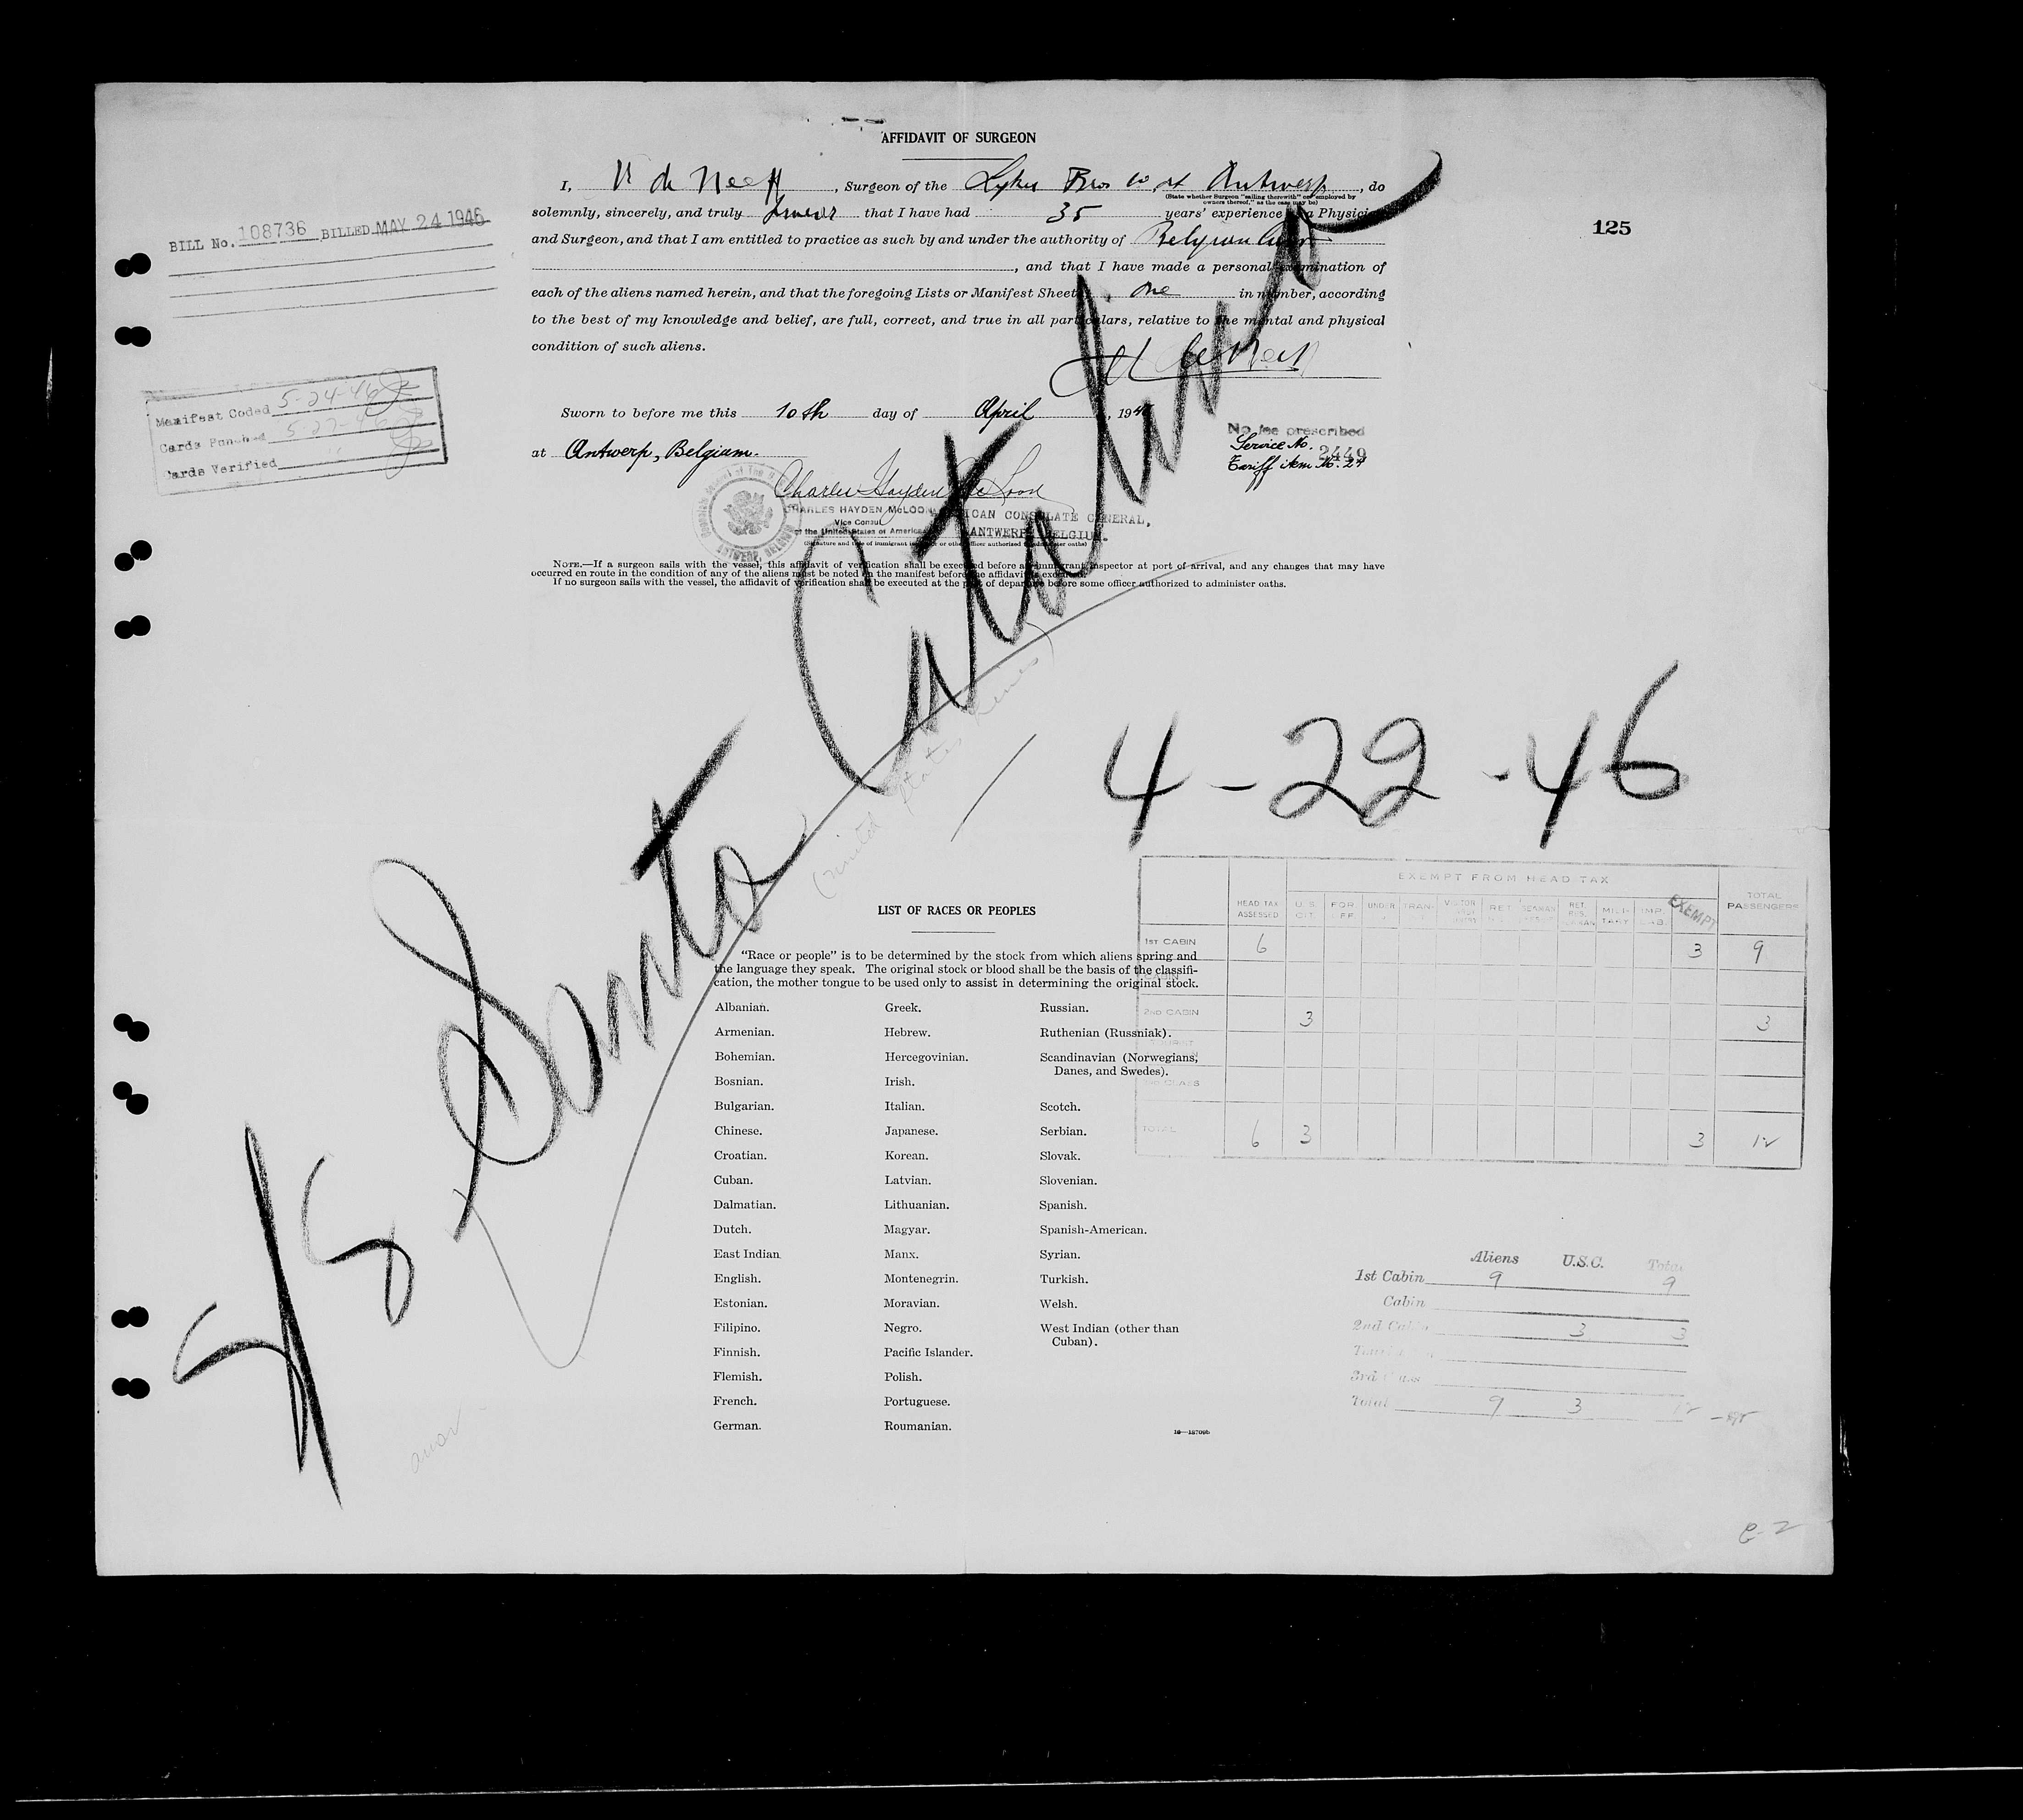 AFFIDAVIT OF SURGEON
I, V de Neeff, Surgeon of the Lykes Bros Co, at Antwerp, do
(State whether Surgeon "sailing therewith" or "employed by
owners thereof," as the case may be)
solemnly, sincerely, and truly swear that I have had 35 years' experience as a Physician
and Surgeon, and that I am entitled to practice as such by and under the authority of Belgian
, and that I have made a personal examination of
each of the aliens named herein, and that the foregoing Lists or Manifest Sheets, one in number, according
to the best of my knowledge and belief, are full, correct, and true in all particulars, relative to the mental and physical
condition of such aliens.
Sworn to before me this 10th day of April, 1946
at Antwerp, Belgium.
No fee prescribed
Service No. 2449
Tariff item No. 24
Charles Hayden McLoon
CHARLES HAYDEN McLOON
Vice Consul
of the United States of America
AMERICAN CONSULATE GENERAL,
ANTWERP, BELGIUM.
(Signature and title of immigrant inspector or other officer authorized to administer oaths)
NOTE.—If a surgeon sails with the vessel, this affidavit of verification shall be executed before an immigrant inspector at port of arrival, and any changes that may have
occurred en route in the condition of any of the aliens must be noted on the manifest before the affidavit is executed.
If no surgeon sails with the vessel, the affidavit of verification shall be executed at the port of departure before some officer authorized to administer oaths.
125
BILL No. 108736 BILLED MAY 24 1946
Manifest Coded 5-24-46
Cards Punched 5-27-46
Cards Verified
S/S Santa Catalina
(United States Lines)
4-22-46
LIST OF RACES OR PEOPLES
"Race or people" is to be determined by the stock from which aliens spring and
the language they speak. The original stock or blood shall be the basis of the classifi-
cation, the mother tongue to be used only to assist in determining the original stock.
Albanian.
Armenian.
Bohemian.
Bosnian.
Bulgarian.
Chinese.
Croatian.
Cuban.
Dalmatian.
Dutch.
East Indian
English.
Estonian.
Filipino.
Finnish.
Flemish.
French.
German.
Greek.
Hebrew.
Hercegovinian.
Irish.
Italian.
Japanese.
Korean.
Latvian.
Lithuanian.
Magyar.
Manx.
Montenegrin.
Moravian.
Negro.
Pacific Islander.
Polish.
Portuguese.
Roumanian.
Russian.
Ruthenian (Russniak).
Scandinavian (Norwegians,
Danes, and Swedes).
Scotch.
Serbian.
Slovak.
Slovenian.
Spanish.
Spanish-American.
Syrian.
Turkish.
Welsh.
West Indian (other than
Cuban).
EXEMPT FROM HEAD TAX
HEAD TAX ASSESSED U.S. CIT. FOR. UNDER TRAN- RET. MILI-TARY IMP. EXEMPT TOTAL PASSENGERS
1ST CABIN 6 3 9
CABIN
2ND CABIN 3 3
TOURIST
3RD CLASS
TOTAL 6 3 3 12
Aliens U.S.C. Total
1st Cabin 9 9
Cabin
2nd Cabin 3 3
3rd Class
Total 9 3 12